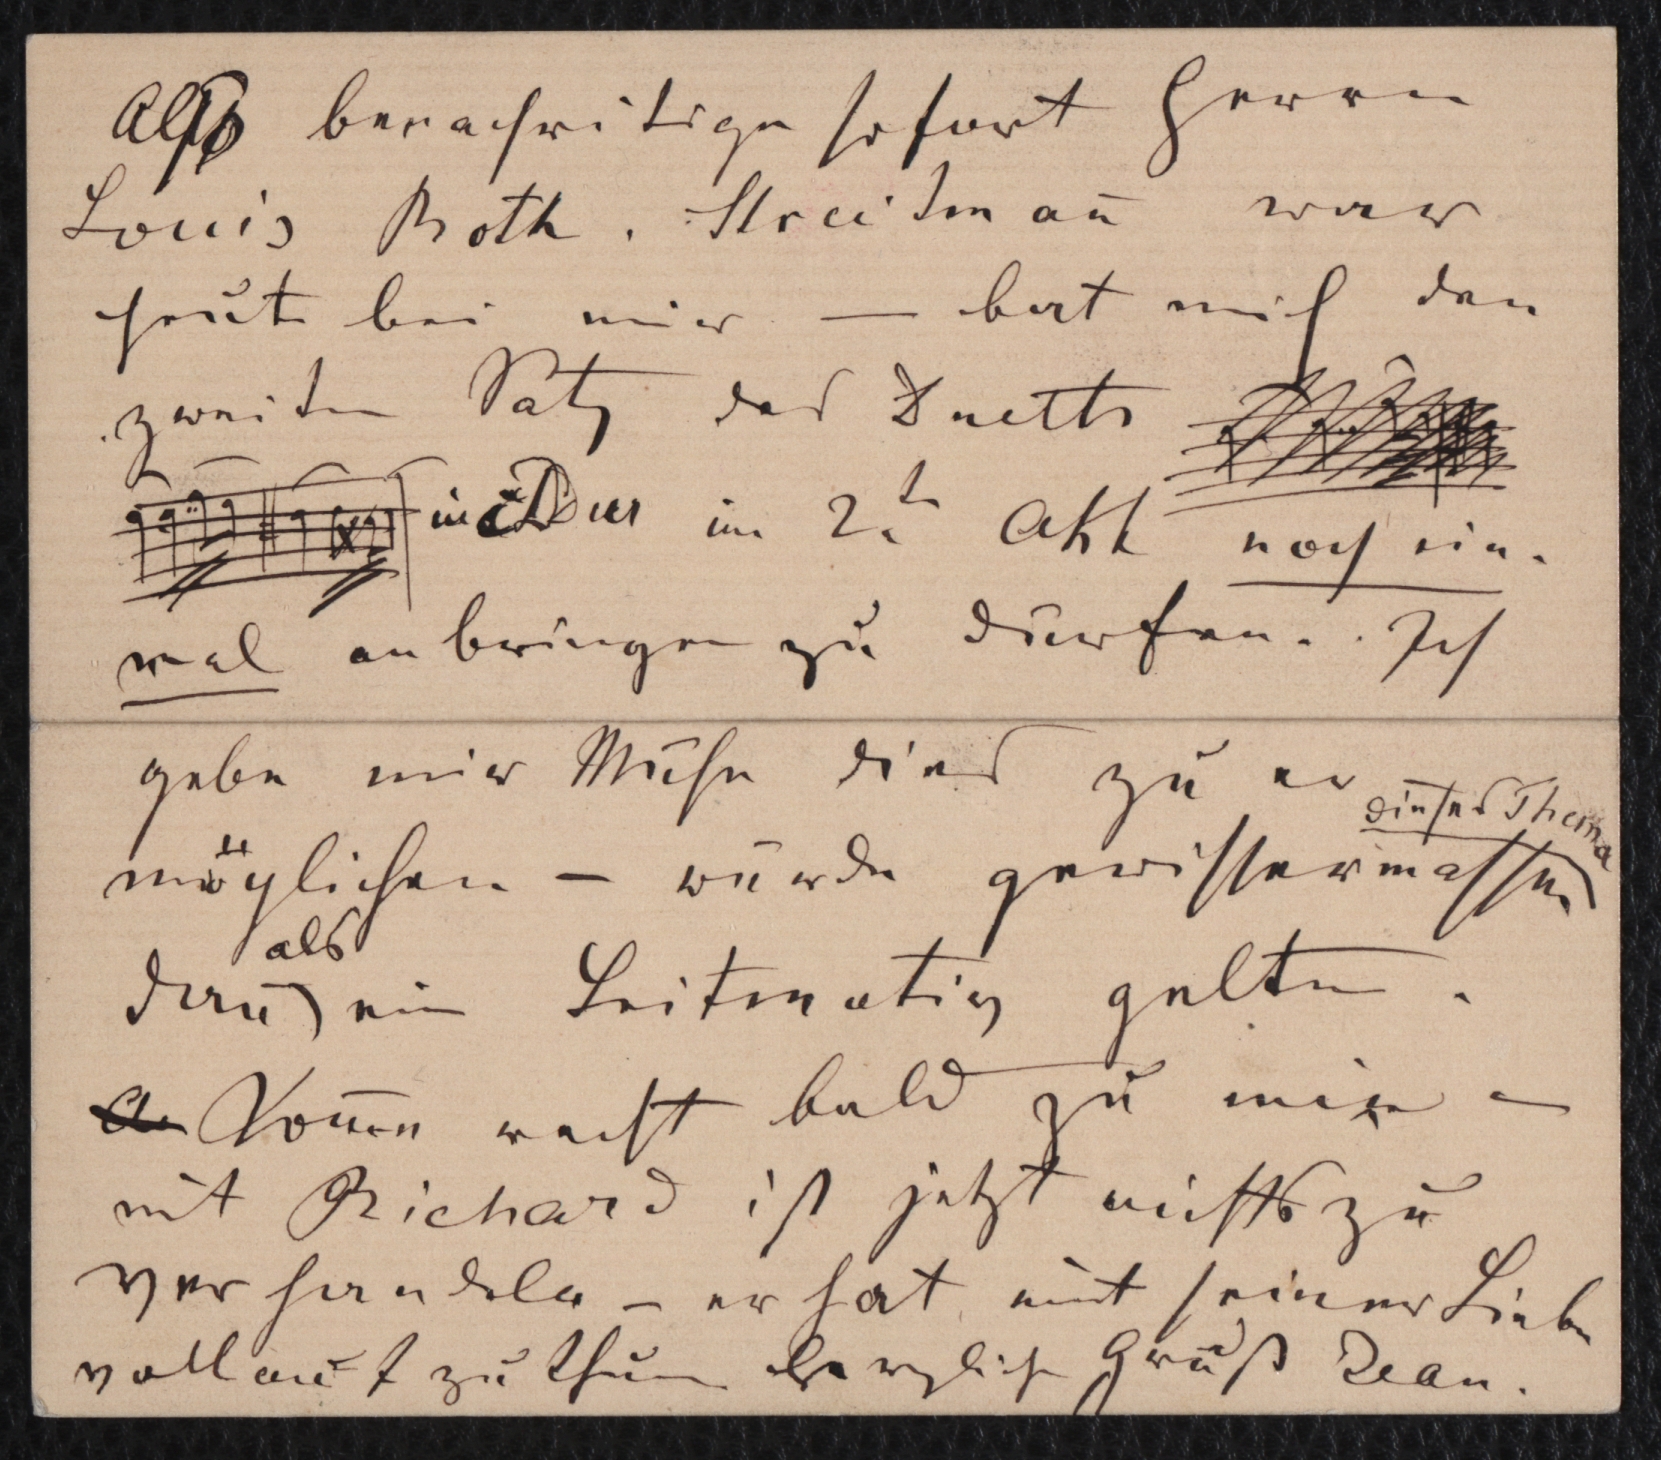 Also benachritige sofort Herrn
Louis Roth. Streitman̄ war
heute bei mir — bat mich den
zweiten Satz des Duetts
in D Dur im 2t Akt noch ein-
mal anbringen zu dürfen. Ich
gebe mir Mühe dies zu er
dieses Thema
möglichen – würde gewissermassen
als
dan̄ ein Leitmotiv gelten.
Kom̄e recht bald zu mir –
mit Richard ist jetzt nichts zu
verhandeln – er hat mit seiner Liebe
vollauf zu thun herzliche Gruß Jean.